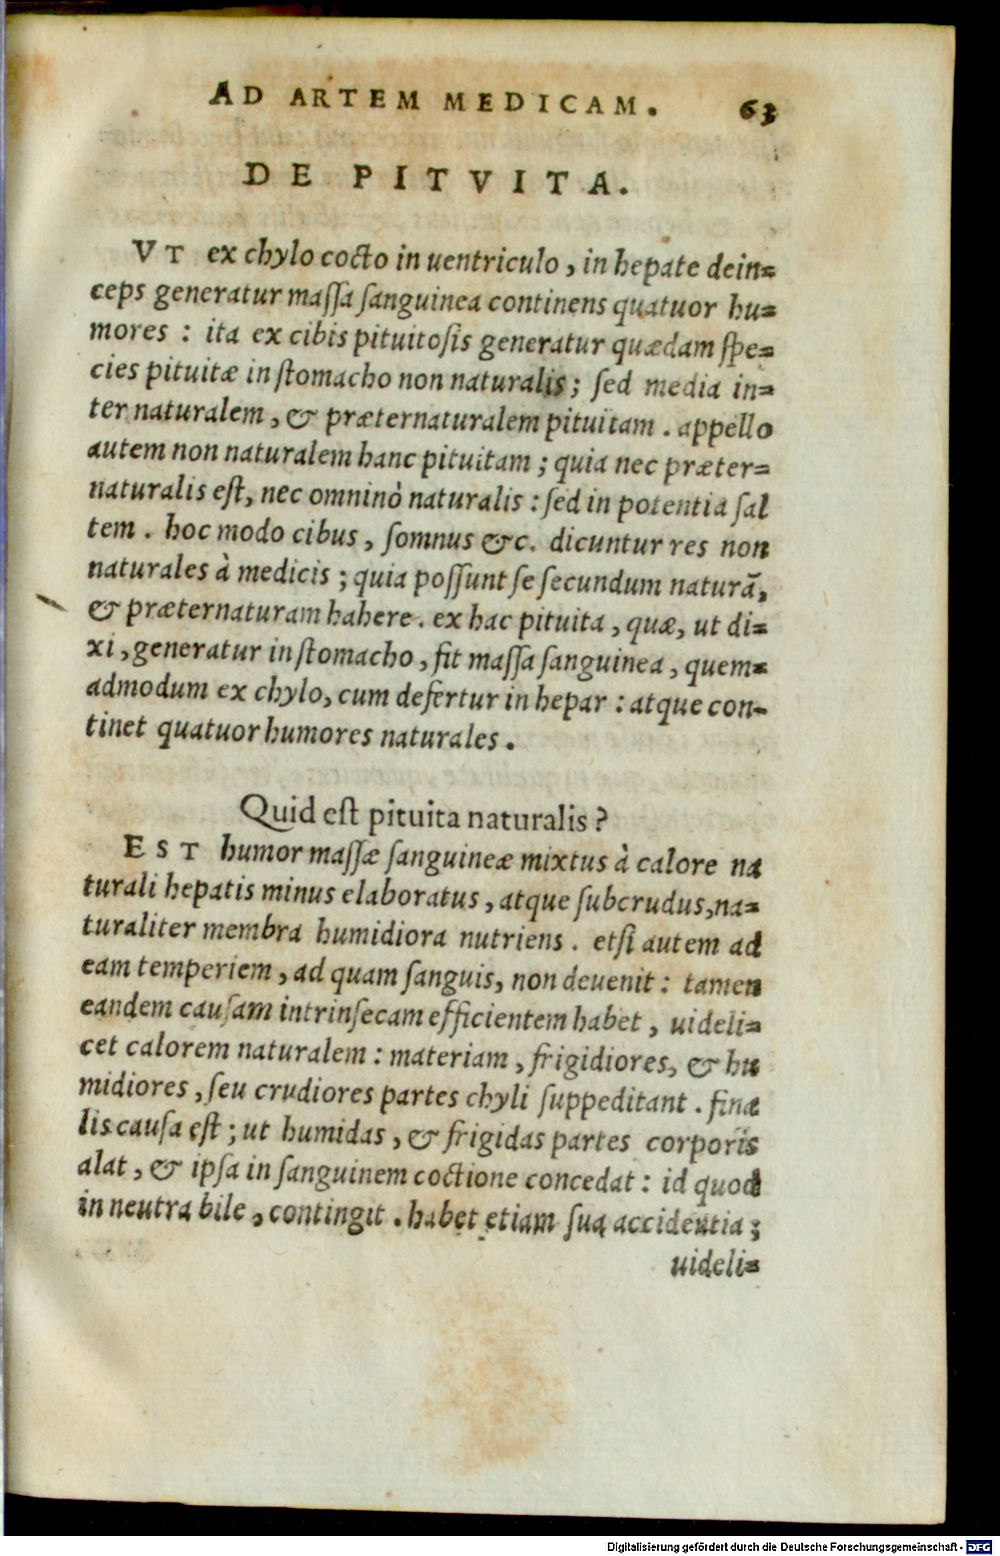 AD ARTEM MEDICAM. 63
DE PITVITA.
VT ex chylo cocto in uentriculo, in hepate dein=
ceps generatur maſſa ſanguinea continens quatuor hu=
mores : ita ex cibis pituitoſis generatur quædam ſpe=
cies pituitæ in ſtomacho non naturalis; ſed media in=
ter naturalem, & præternaturalem pituitam. appello
autem non naturalem hanc pituitam ; quia nec præter=
naturalis eſt, nec omninò naturalis : ſed in potentia ſal
tem. hoc modo cibus, ſomnus &c. dicuntur res non
naturales à medicis ; quia poſſunt ſe ſecundum naturã,
& præternaturam hahere. ex hac pituita, quæ, ut di=
xi, generatur in ſtomacho, fit maſſa ſanguinea, quem=
admodum ex chylo, cum defertur in hepar : atque con-
tinet quatuor humores naturales.
Quid eſt pituita naturalis?
EST humor maſſæ ſanguineæ mixtus à calore na
turali hepatis minus elaboratus, atque ſubcrudus, na=
turaliter membra humidiora nutriens. etſi autem ad
eam temperiem, ad quam ſanguis, non deuenit : tamen
eandem cauſam intrinſecam efficientem habet, uideli=
cet calorem naturalem : materiam, frigidiores, & hu
midiores, ſeu crudiores partes chyli ſuppeditant. fina
lis cauſa eſt ; ut humidas, & frigidas partes corporis
alat, & ipſa in ſanguinem coctione concedat : id quod
in neutra bile, contingit. habet etiam ſua accidentia ;
uideli=
Digitalisierung gefördert durch die Deutsche Forschungsgemeinschaft - DFG